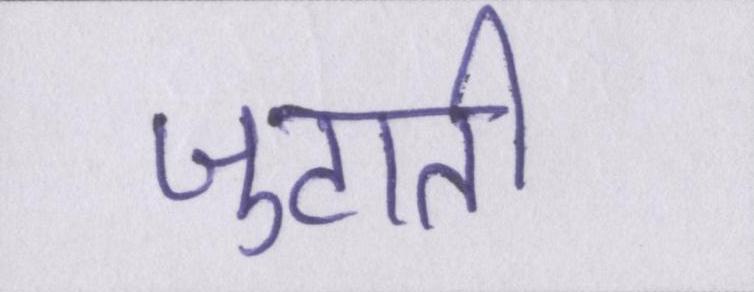 जुटाती